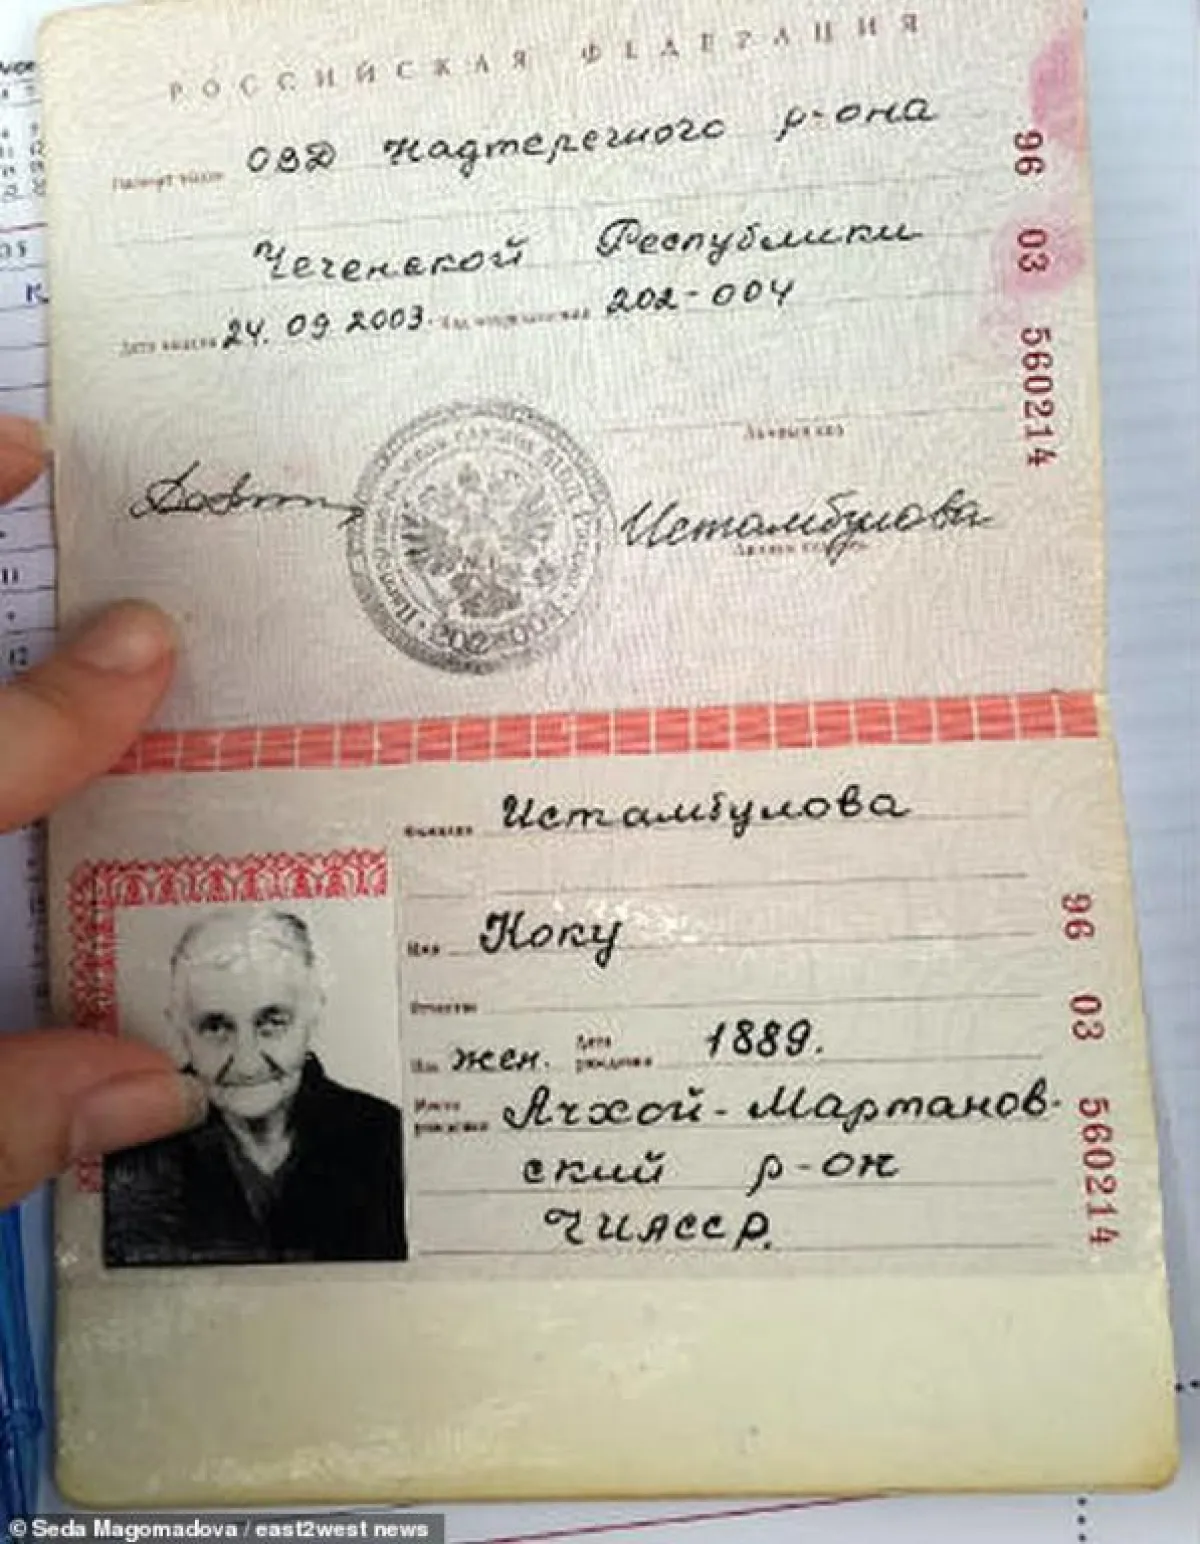 РОССИЙСКАЯ ФЕДЕРАЦИЯ
Паспорт выдан ОВД Надтеречного р-она
Чеченской Республики
Дата выдачи 24.09 2003. Код подразделения 202-004
96 03 560214
Личный код
Истамбулова
Личная подпись
202-004
Фамилия Истамбулова
Имя Коку
Отчество
Пол жен. Дата рождения 1889.
Место рождения Ачхой-Мартанов-
ский р-он
ЧИАССР.
96 03 560214
© Seda Magomadova / east2west news